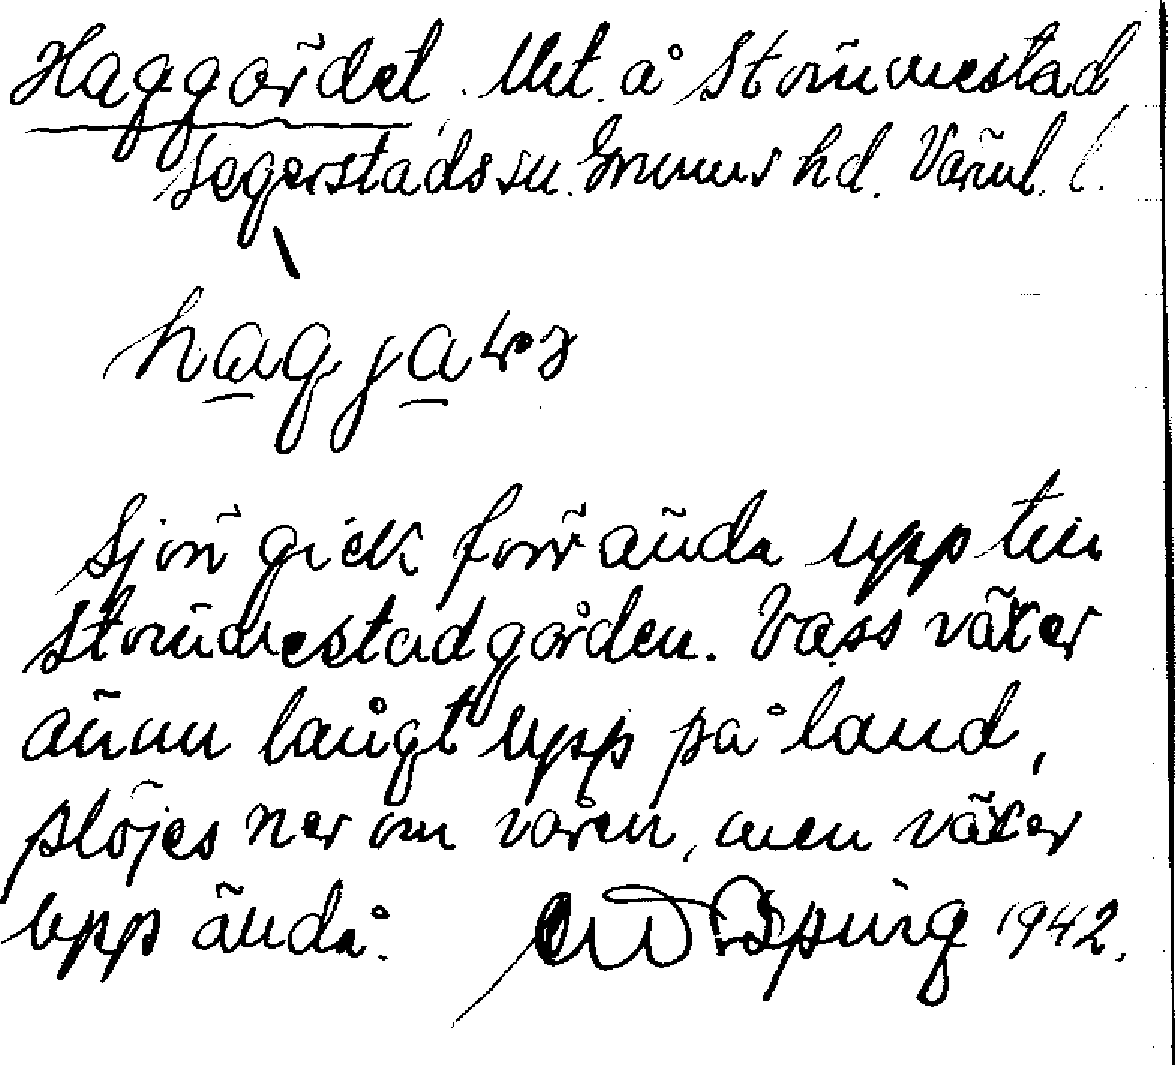 Haggärdet. Utt. å Stömmestad,
Segerstads sn. Grums hd. Värml. l.
Sjön gick förr ända upp till
Stömmestadgården. Vass växer
ännu långt upp på land,
plöjes ner om våren, men växer
upp ändå. 1942.